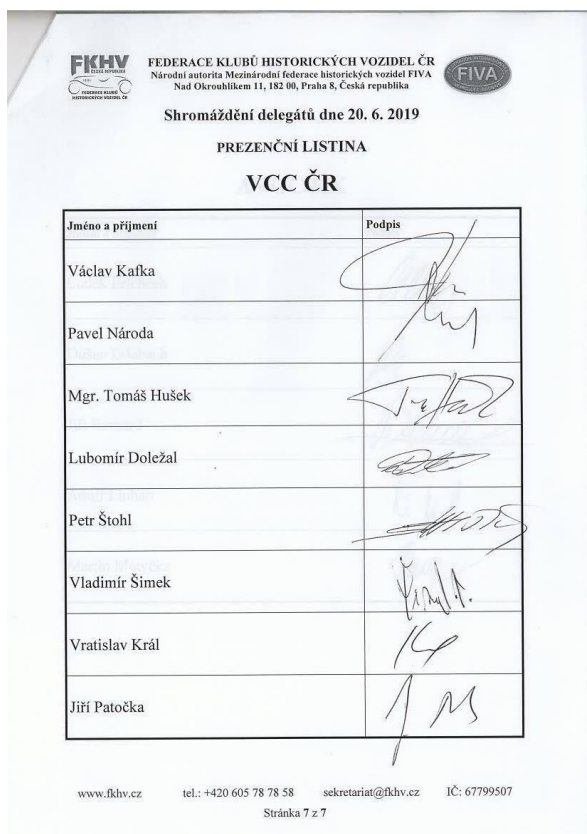 FKHV
ČESKÁ REPUBLIKA
FEDERACE KLUBŮ
HISTORICKÝCH VOZIDEL ČR
FEDERACE KLUBŮ HISTORICKÝCH VOZIDEL ČR
Národní autorita Mezinárodní federace historických vozidel FIVA
Nad Okrouhlíkem 11, 182 00, Praha 8, Česká republika
FIVA
Shromáždění delegátů dne 20. 6. 2019
PREZENČNÍ LISTINA
VCC ČR
Jméno a příjmení Podpis
Václav Kafka
Pavel Národa
Mgr. Tomáš Hušek
Lubomír Doležal
Petr Štohl
Vladimír Šimek
Vratislav Král
Jiří Patočka
www.fkhv.cz tel.: +420 605 78 78 58 sekretariat@fkhv.cz IČ: 67799507
Stránka 7 z 7